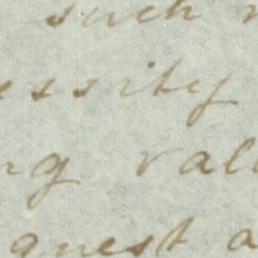 such
essity
ng val
quest a